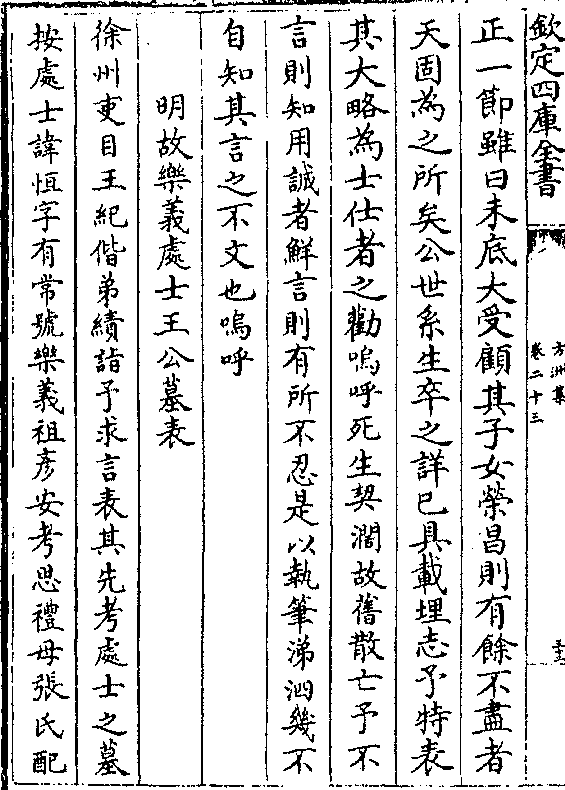 欽定四庫全書
方洲集
卷二十三
正一節雖曰未底大受顧其子女榮昌則有餘不盡者
天固為之所矣公世系生卒之詳已具載埋志予特表
其大略為士仕者之勸嗚呼死生契濶故舊散亡予不
言則知用誠者鮮言則有所不忍是以執筆涕泗幾不
自知其言之不文也嗚呼
明故樂義處士王公墓表
徐州吏目王紀偕弟績詣予求言表其先考處士之墓
按處士諱恒字有常號樂義祖彥安考思禮母張氏配